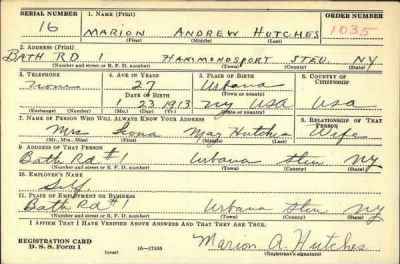 SERIAL NUMBER 1. NAME (Print) ORDER NUMBER
16 MARION ANDREW HUTCHES 1035
(First) (Middle) (Last)
2. ADDRESS (Print)
BATH RD 1 HAMMONDSPORT STEU. NY
(Number and street or R. F. D. number) (Town) (County) (State)
3. TELEPHONE 4. AGE IN YEARS 5. PLACE OF BIRTH 6. COUNTRY OF CITIZENSHIP
None 27 Urbana
DATE OF BIRTH (Town or county)
1 23 1913 NY USA USA
(Exchange) (Number) (Mo.) (Day) (Yr.) (State or country)
7. NAME OF PERSON WHO WILL ALWAYS KNOW YOUR ADDRESS 8. RELATIONSHIP OF THAT PERSON
Mrs May Hutches Wife
(Mr., Mrs., Miss) (First) (Middle) (Last)
9. ADDRESS OF THAT PERSON
Bath Rd #1 Urbana Steu NY
(Number and street or R. F. D. number) (Town) (County) (State)
10. EMPLOYER'S NAME
Self
11. PLACE OF EMPLOYMENT OR BUSINESS
Bath Rd #1 Urbana Steu NY
(Number and street or R. F. D. number) (Town) (County) (State)
I AFFIRM THAT I HAVE VERIFIED ABOVE ANSWERS AND THAT THEY ARE TRUE.
REGISTRATION CARD
D. S. S. Form 1 (over) 16—17105 Marion A. Hutches
(Registrant's signature)